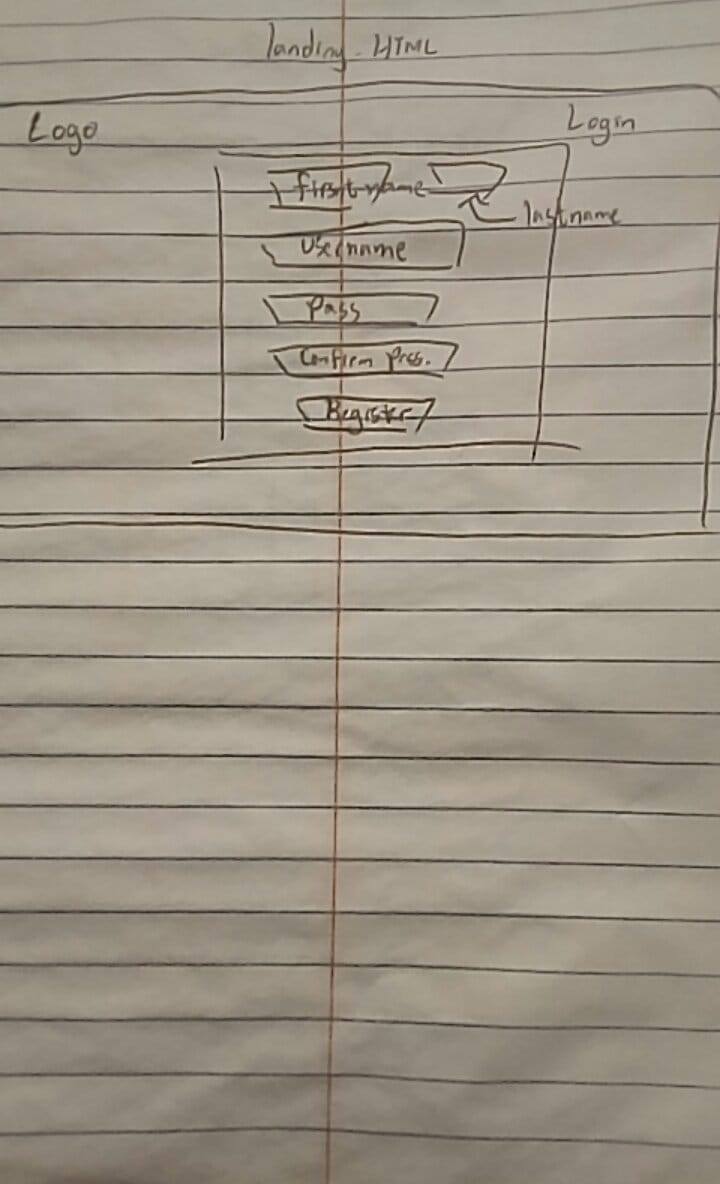 landing.HTML
Logo
Login
firstname
lastname
Username
Pass
Confirm Pass.
Register